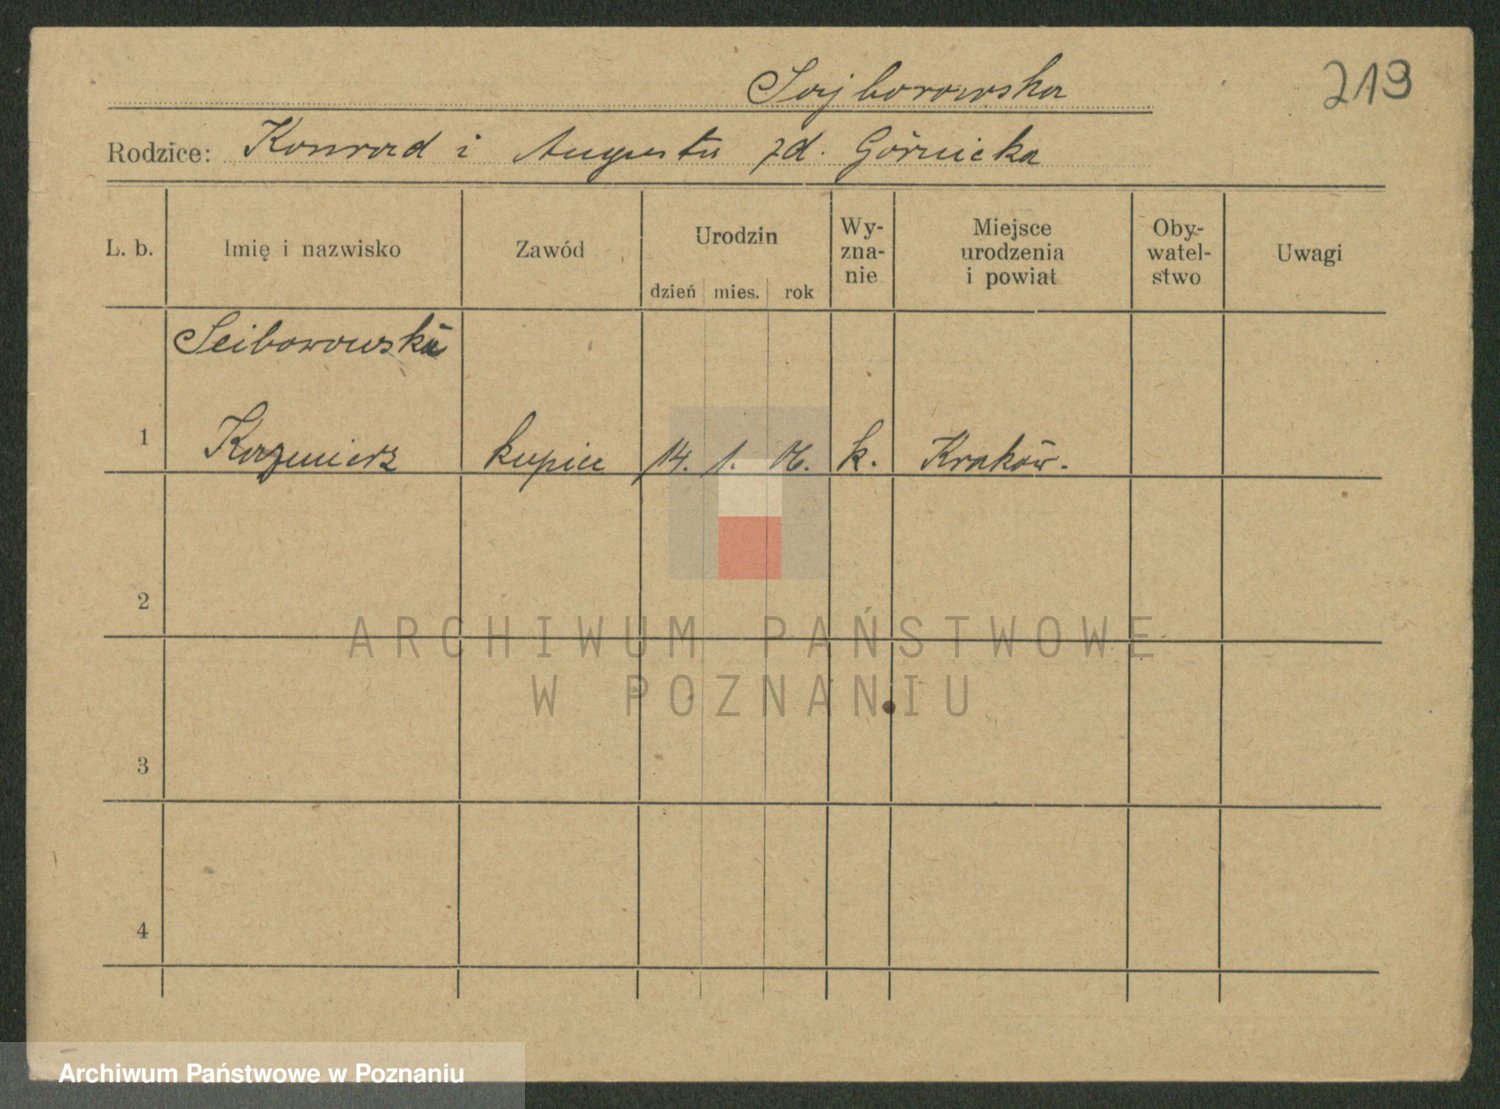 219
Sojborowska
Rodzice: Konrad i Augusta zd. Górnicka
L. b. Imię i nazwisko Zawód Urodzin dzień mies. rok Wy-zna-nie Miejsce urodzenia i powiat Oby-watel-stwo Uwagi
Seiborowski
1 Kazimierz kupiec 14. 1. 06. k. Kraków.
2
3
4
ARCHIWUM PAŃSTWOWE
W POZNANIU
Archiwum Państwowe w Poznaniu